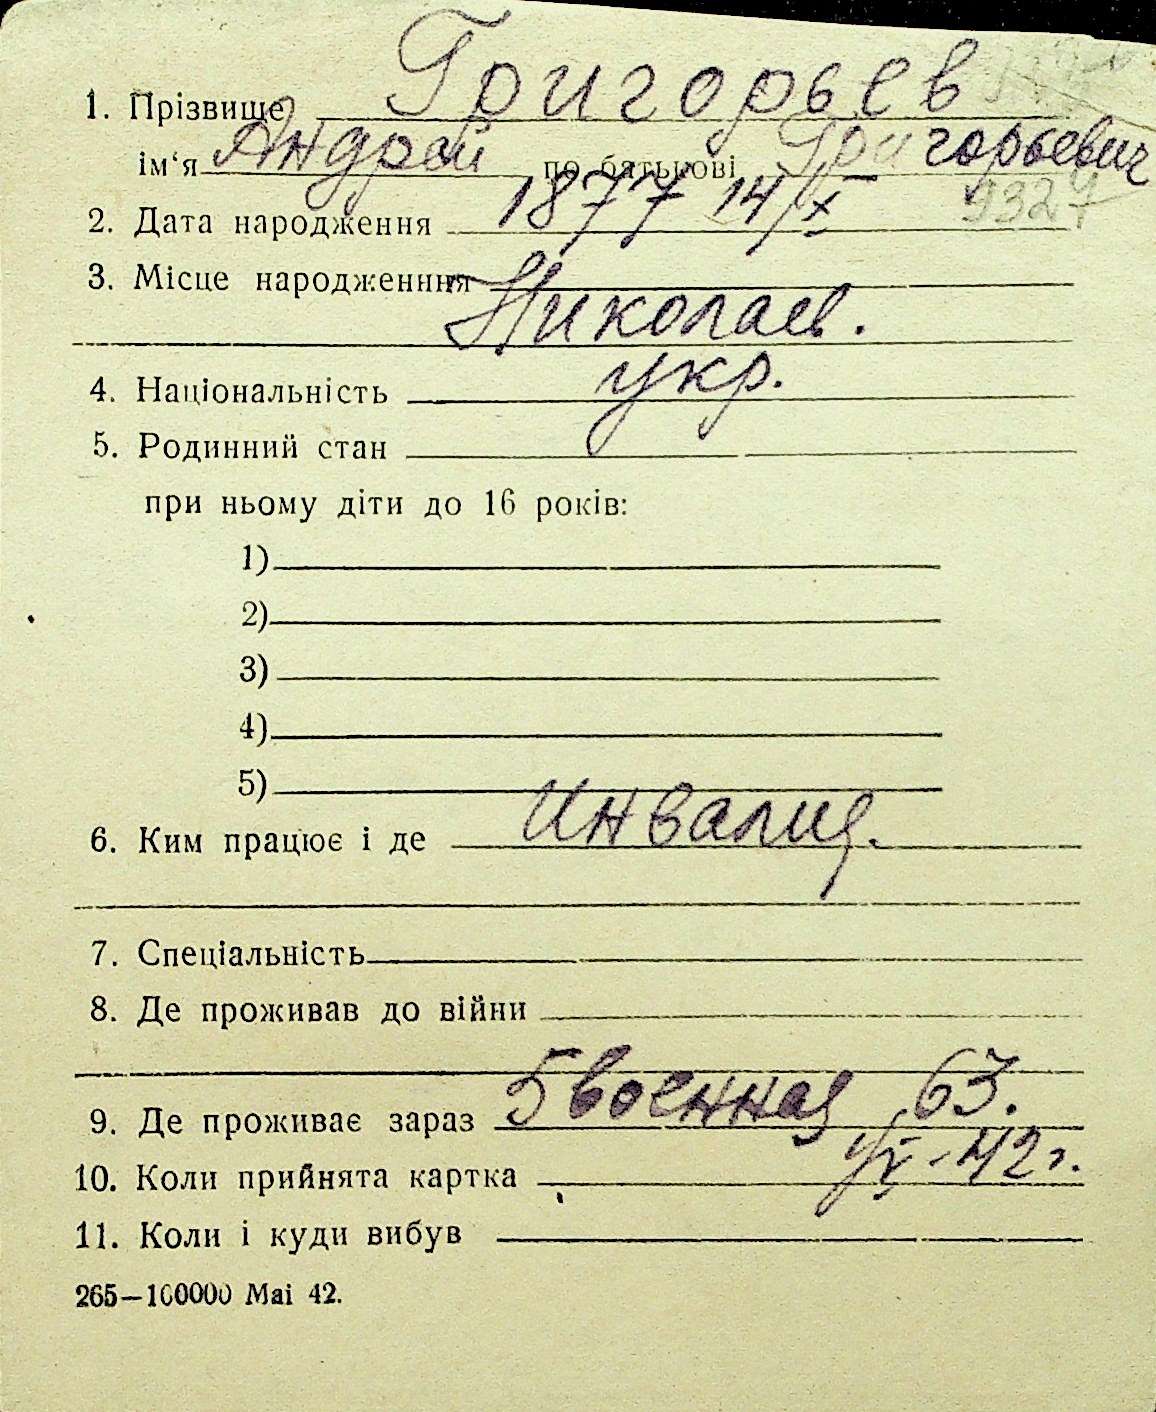 1. Прізвище Григорьев
ім‘я Андрей по батькові Григорьевич
2. Дата народження 1877 14/X
9327
3. Місце народженння
Николаев.
4. Національність укр.
5. Родинний стан
при ньому діти до 16 років:
1)
2)
3)
4)
5)
6. Ким працює і де Инвалид.
7. Спеціальність
8. Де проживав до війни
9. Де проживає зараз 5 военная 63.
10. Коли прийнята картка 42 г.
11. Коли і куди вибув
265—100000 Mai 42.